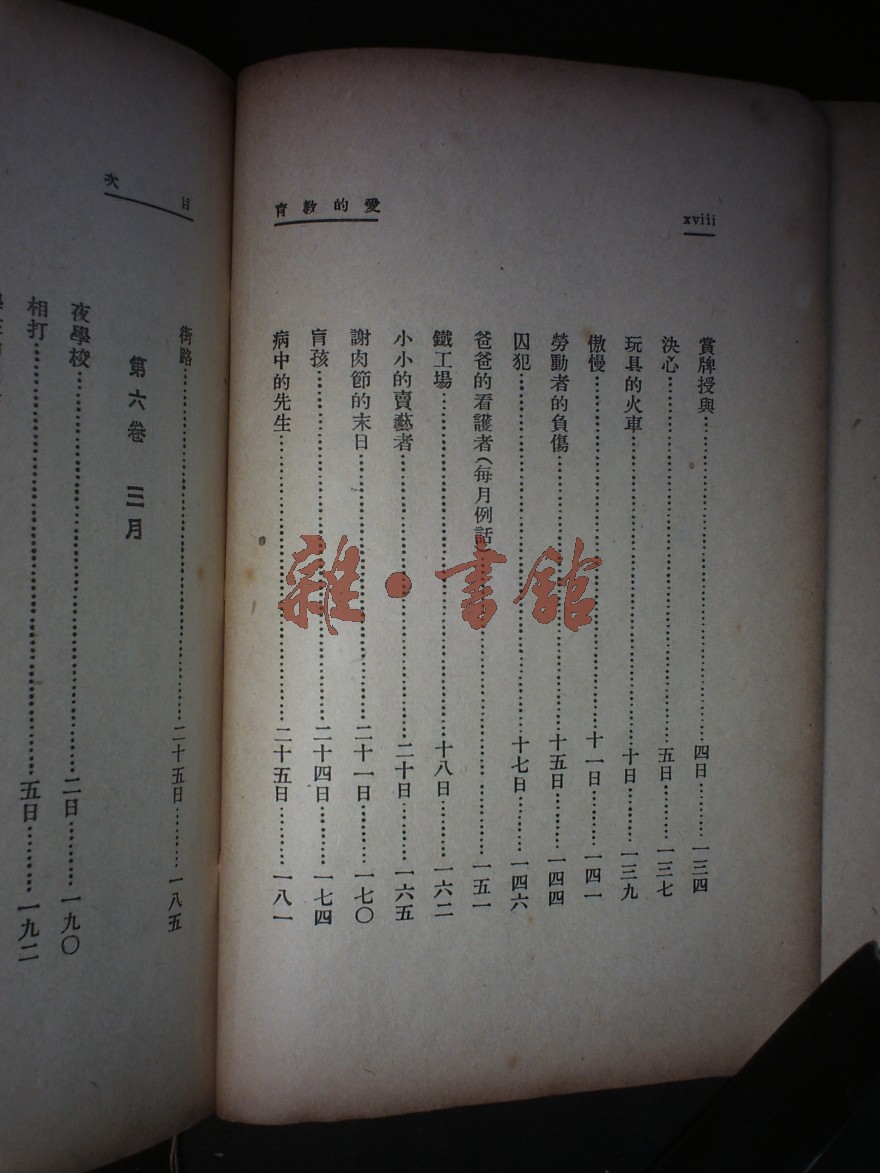 xviii
愛的教育
賞牌授與…………四日………一三四
決心…………五日………一三七
玩具的火車…………十日………一三九
傲慢…………十一日………一四一
勞動者的負傷…………十五日………一四四
囚犯…………十七日………一四六
爸爸的看護者(每月例話)…………一五一
鐵工場…………十八日………一六二
小小的賣藝者…………二十日………一六五
謝肉節的末日…………二十一日………一七〇
盲孩…………二十四日………一七四
病中的先生…………二十五日………一八一
目次
街路…………二十五日………一八五
第六卷 三月
夜學校…………二日………一九〇
相打…………五日………一九二
雜·書館